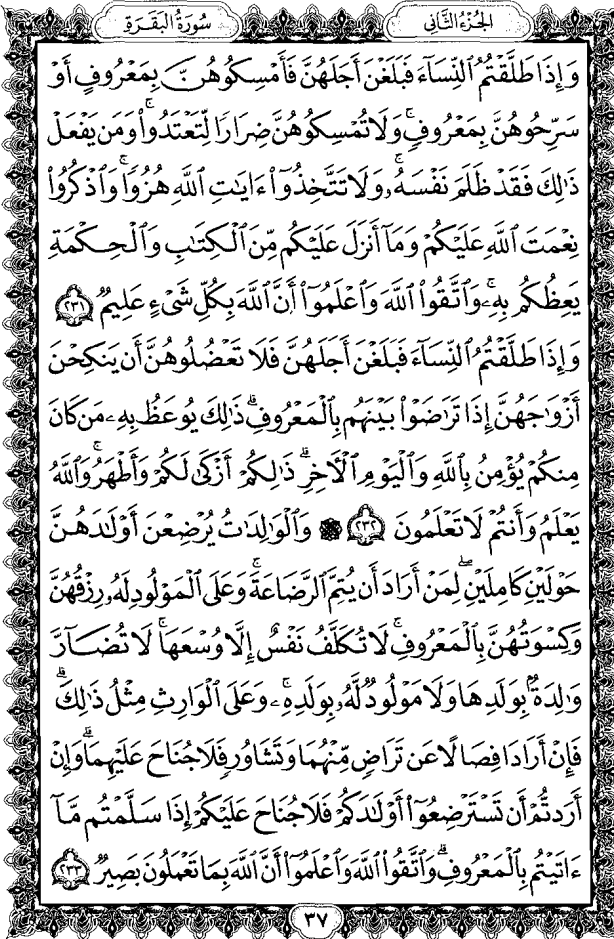 الجُزْءُ الثَّانِي
سُورَةُ البَقَرَةِ
وَإِذَا طَلَّقْتُمُ ٱلنِّسَآءَ فَبَلَغْنَ أَجَلَهُنَّ فَأَمْسِكُوهُنَّ بِمَعْرُوفٍ أَوْ
سَرِّحُوهُنَّ بِمَعْرُوفٍۚ وَلَا تُمْسِكُوهُنَّ ضِرَارًا لِّتَعْتَدُوا۟ۚ وَمَن يَفْعَلْ
ذَٰلِكَ فَقَدْ ظَلَمَ نَفْسَهُۥۚ وَلَا تَتَّخِذُوٓا۟ ءَايَٰتِ ٱللَّهِ هُزُوًاۚ وَٱذْكُرُوا۟
نِعْمَتَ ٱللَّهِ عَلَيْكُمْ وَمَآ أَنزَلَ عَلَيْكُم مِّنَ ٱلْكِتَٰبِ وَٱلْحِكْمَةِ
يَعِظُكُم بِهِۦۚ وَٱتَّقُوا۟ ٱللَّهَ وَٱعْلَمُوٓا۟ أَنَّ ٱللَّهَ بِكُلِّ شَىْءٍ عَلِيمٌ ٢٣١
وَإِذَا طَلَّقْتُمُ ٱلنِّسَآءَ فَبَلَغْنَ أَجَلَهُنَّ فَلَا تَعْضُلُوهُنَّ أَن يَنكِحْنَ
أَزْوَٰجَهُنَّ إِذَا تَرَٰضَوْا۟ بَيْنَهُم بِٱلْمَعْرُوفِۗ ذَٰلِكَ يُوعَظُ بِهِۦ مَن كَانَ
مِنكُمْ يُؤْمِنُ بِٱللَّهِ وَٱلْيَوْمِ ٱلْءَاخِرِۗ ذَٰلِكُمْ أَزْكَىٰ لَكُمْ وَأَطْهَرُۚ وَٱللَّهُ
يَعْلَمُ وَأَنتُمْ لَا تَعْلَمُونَ ٢٣٢ ۞ وَٱلْوَٰلِدَٰتُ يُرْضِعْنَ أَوْلَٰدَهُنَّ
حَوْلَيْنِ كَامِلَيْنِۖ لِمَنْ أَرَادَ أَن يُتِمَّ ٱلرَّضَاعَةَۚ وَعَلَى ٱلْمَوْلُودِ لَهُۥ رِزْقُهُنَّ
وَكِسْوَتُهُنَّ بِٱلْمَعْرُوفِۚ لَا تُكَلَّفُ نَفْسٌ إِلَّا وُسْعَهَاۚ لَا تُضَآرَّ
وَٰلِدَةٌۢ بِوَلَدِهَا وَلَا مَوْلُودٌ لَّهُۥ بِوَلَدِهِۦۚ وَعَلَى ٱلْوَارِثِ مِثْلُ ذَٰلِكَۗ
فَإِنْ أَرَادَا فِصَالًا عَن تَرَاضٍ مِّنْهُمَا وَتَشَاوُرٍ فَلَا جُنَاحَ عَلَيْهِمَاۗ وَإِنْ
أَرَدتُّمْ أَن تَسْتَرْضِعُوٓا۟ أَوْلَٰدَكُمْ فَلَا جُنَاحَ عَلَيْكُمْ إِذَا سَلَّمْتُم مَّآ
ءَاتَيْتُم بِٱلْمَعْرُوفِۗ وَٱتَّقُوا۟ ٱللَّهَ وَٱعْلَمُوٓا۟ أَنَّ ٱللَّهَ بِمَا تَعْمَلُونَ بَصِيرٌ ٢٣٣
٣٧